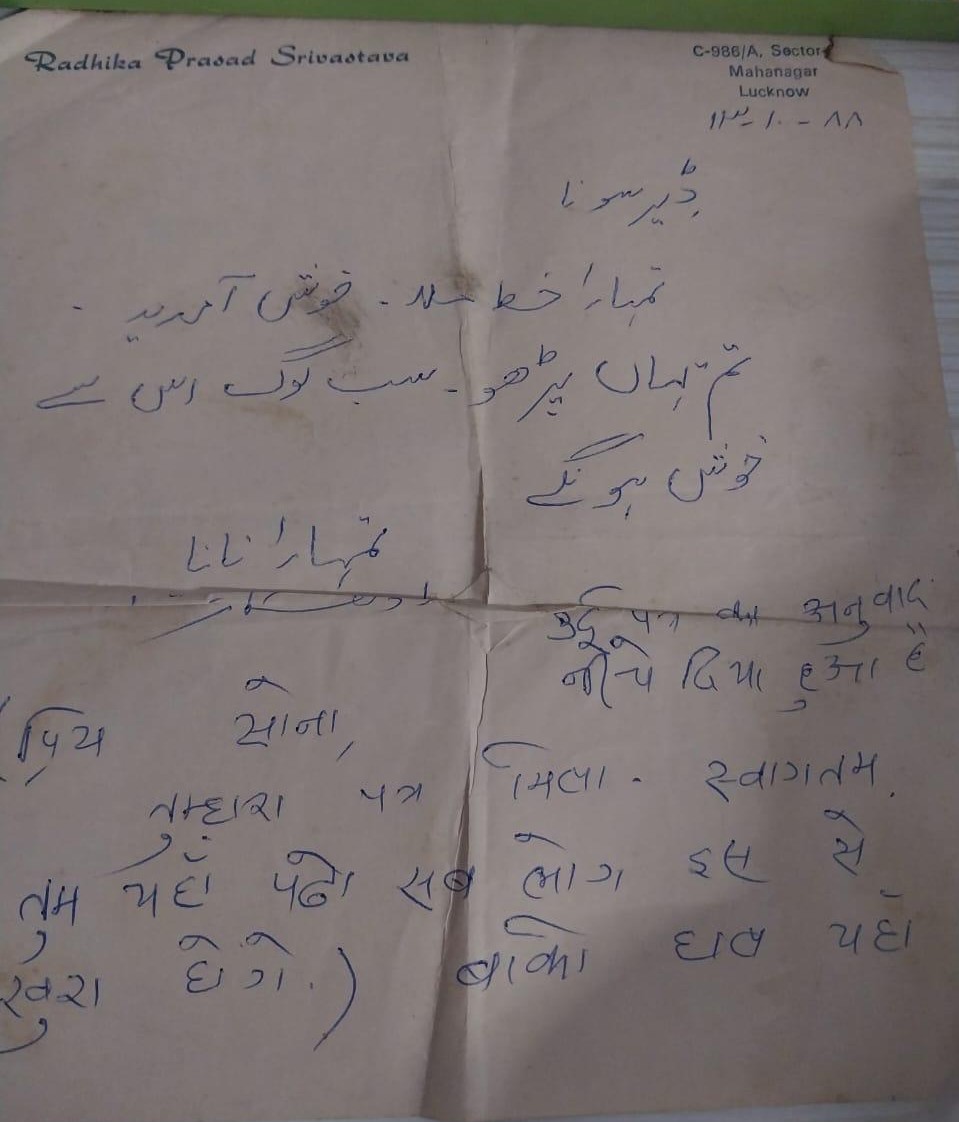 Radhika Prasad Srivastava
C-986/A, Sector
Mahanagar
Lucknow
۱۳-۱۰-۸۸
ڈیر سونا
تمہارا خط ملا۔ خوش آمدید۔
تم یہاں پڑھو۔ سب لوگ اس سے
خوش ہونگے
تمہارا نانا
उर्दू पत्र का अनुवाद
नीचे दिया हुआ है
(प्रिय सोना,
तुम्हारा पत्र मिला. स्वागतम.
तुम यहाँ पढो सब लोग इस से
खुश होगे.) बाकी हाल यहाँ